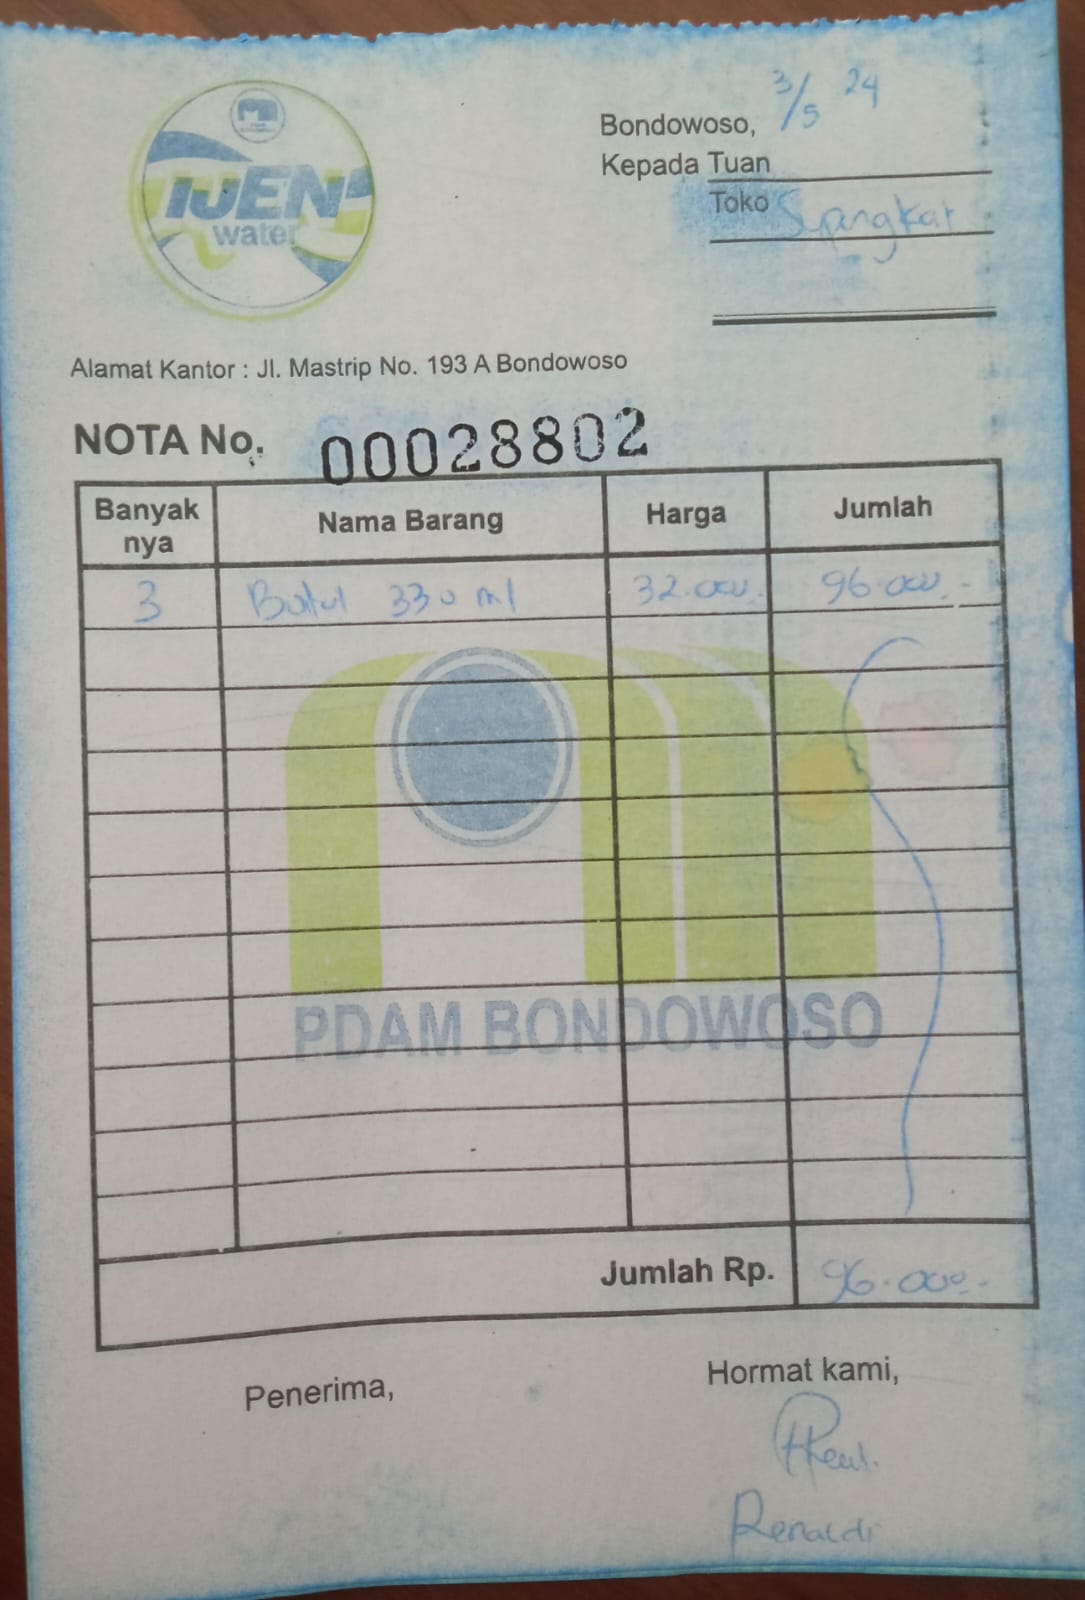 IJEN
water
Bondowoso, 3/5 24
Kepada Tuan
Toko
Alamat Kantor : Jl. Mastrip No. 193 A Bondowoso
NOTA No. 00028802
Banyak nya Nama Barang Harga Jumlah
3 Botol 330 ml 32.000.- 96.000.-
PDAM BONDOWOSO
Jumlah Rp. 96.000.-
Penerima, Hormat kami,
Renaldi